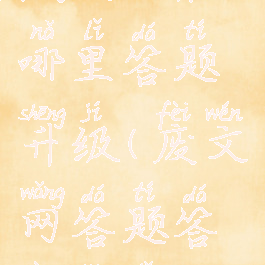 nǎ lǐ dá tí
哪里答题
shēng jí fèi wén
升级(废文
wǎng dá tí dá
网答题答